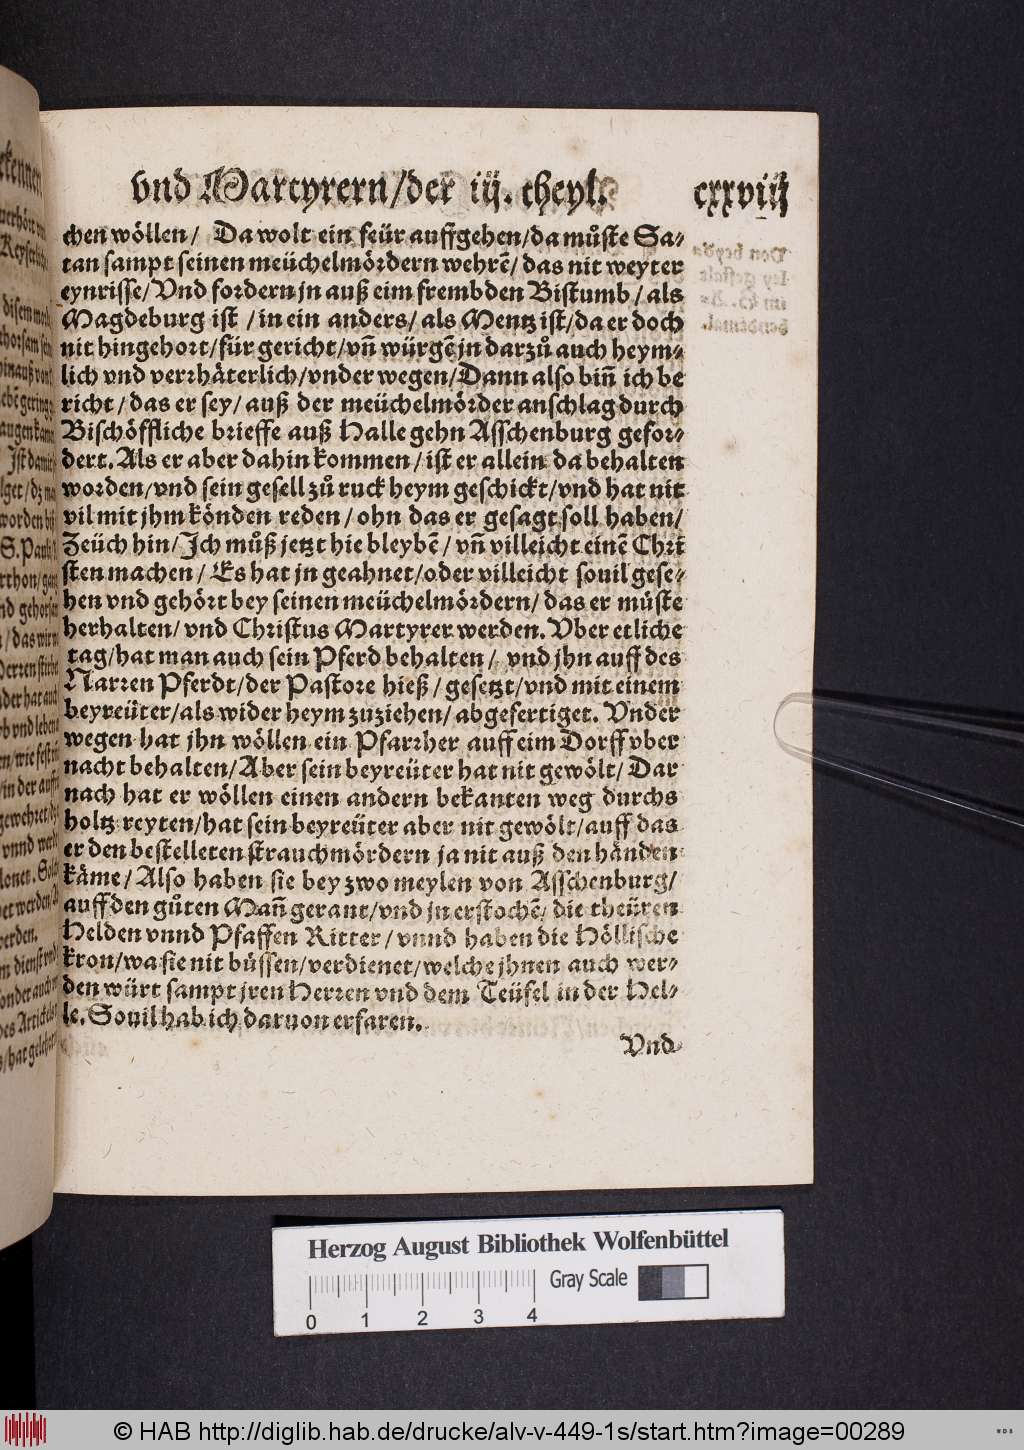 vnd Martyrern/der iij. theyl. cxxviij
chen wöllen/ Da wolt ein feür auffgehen/da můste Sa-
tan sampt seinen meüchelmördern wehrē/ das nit weyter
eynrisse/ Vnd fordern jn auß eim frembden Bistumb/ als
Magdeburg ist /in ein anders/ als Mentz ist/da er doch
nit hingehort/für gericht/vn̄ würgē jn darzů auch heym-
lich vnd verrhäterlich/vnder wegen/Dann also bin̄ ich be
richt/ das er sey/ auß der meüchelmörder anschlag durch
Bischöffliche brieffe auß Halle gehn Asschenburg gefor-
dert. Als er aber dahin kommen/ ist er allein da behalten
worden/vnd sein gesell zů ruck heym geschickt/vnd hat nit
vil mit jhm könden reden/ ohn das er gesagt soll haben/
Zeüch hin/ Jch můß jetzt hie bleybē/ vn̄ villeicht einē Chri
sten machen/ Es hat jn geahnet/oder villeicht souil gese-
hen vnd gehört bey seinen meüchelmördern/ das er müste
herhalten/ vnd Christus Martyrer werden. Vber etliche
tag/hat man auch sein Pferd behalten/ vnd jhn auff des
Narren Pferdt/der Pastore hieß/ gesetzt/vnd mit einem
beyreüter/als wider heym zuziehen/ abgefertiget. Vnder
wegen hat jhn wöllen ein Pfarrher auff eim Dorff vber
nacht behalten/ Aber sein beyreüter hat nit gewölt/ Dar
nach hat er wöllen einen andern bekanten weg durchs
holtz reyten/hat sein beyreüter aber nit gewölt/auff das
er den bestelleten strauchmördern ja nit auß den händen
käme/ Also haben sie bey zwo meylen von Asschenburg/
auff den gůten Man̄ gerant/vnd jn erstochē/ die theüren
Helden vnnd Pfaffen Ritter/ vnnd haben die Höllische
kron/wa sie nit büssen/verdienet/welche jhnen auch wer-
den würt sampt jren Herren vnd dem Teüfel in der Hel-
le. Souil hab ich daruon erfaren.
Vnd
Herzog August Bibliothek Wolfenbüttel
Gray Scale
0 1 2 3 4
© HAB http://diglib.hab.de/drucke/alv-v-449-1s/start.htm?image=00289